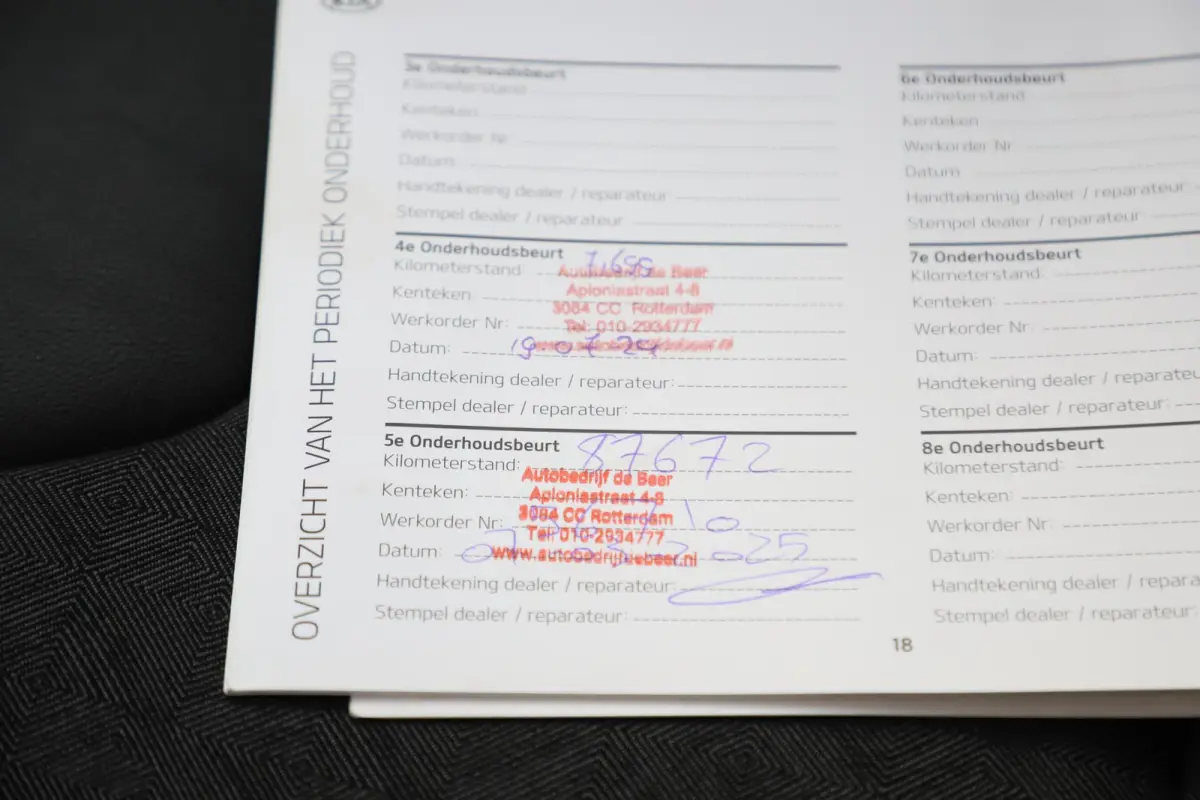 KIA
OVERZICHT VAN HET PERIODIEK ONDERHOUD
3e Onderhoudsbeurt
Kilometerstand
Kenteken
Werkorder Nr
Datum
Handtekening dealer / reparateur
Stempel dealer / reparateur
4e Onderhoudsbeurt
Kilometerstand:
Autobedrijf de Beer
Kenteken:
Aploniastraat 4-8
3084 CC Rotterdam
Werkorder Nr:
Tel: 010-2934777
Datum: 19 07 24
Handtekening dealer / reparateur:
Stempel dealer / reparateur:
5e Onderhoudsbeurt
Kilometerstand: 87672
Autobedrijf de Beer
Kenteken:
Aploniastraat 4-8
3084 CC Rotterdam
Werkorder Nr:
Tel: 010-2934777
Datum: 2025
www.autobedrijfdebeer.nl
Handtekening dealer / reparateur:
Stempel dealer / reparateur:
6e Onderhoudsbeurt
Kilometerstand
Kenteken
Werkorder Nr
Datum
Handtekening dealer / reparateur
Stempel dealer / reparateur
7e Onderhoudsbeurt
Kilometerstand:
Kenteken:
Werkorder Nr:
Datum:
Handtekening dealer / reparateu
Stempel dealer / reparateur:
8e Onderhoudsbeurt
Kilometerstand:
Kenteken:
Werkorder Nr:
Datum:
Handtekening dealer / repara
Stempel dealer / reparateur:
18